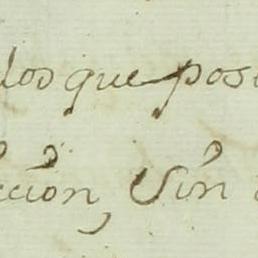 los que pose
ccion, Sin